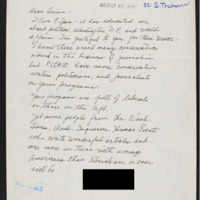 dear Brian -
I love C Span - it has educated me
about politics, Washington D.C. and world
affairs. I'm grateful to you for these
I know there aren't many conservatives
in the business of journalism
but PLEASE have more conservative
writers, politicians, and journalists
on your program.
Your programs are full of liberals
or those on the left.
Get some people from the Wash.
Times, Wash. Inquirer, Human Events
who write wonderful articles, and
are more in tune with average
Americans than liberalism or ever
will be.